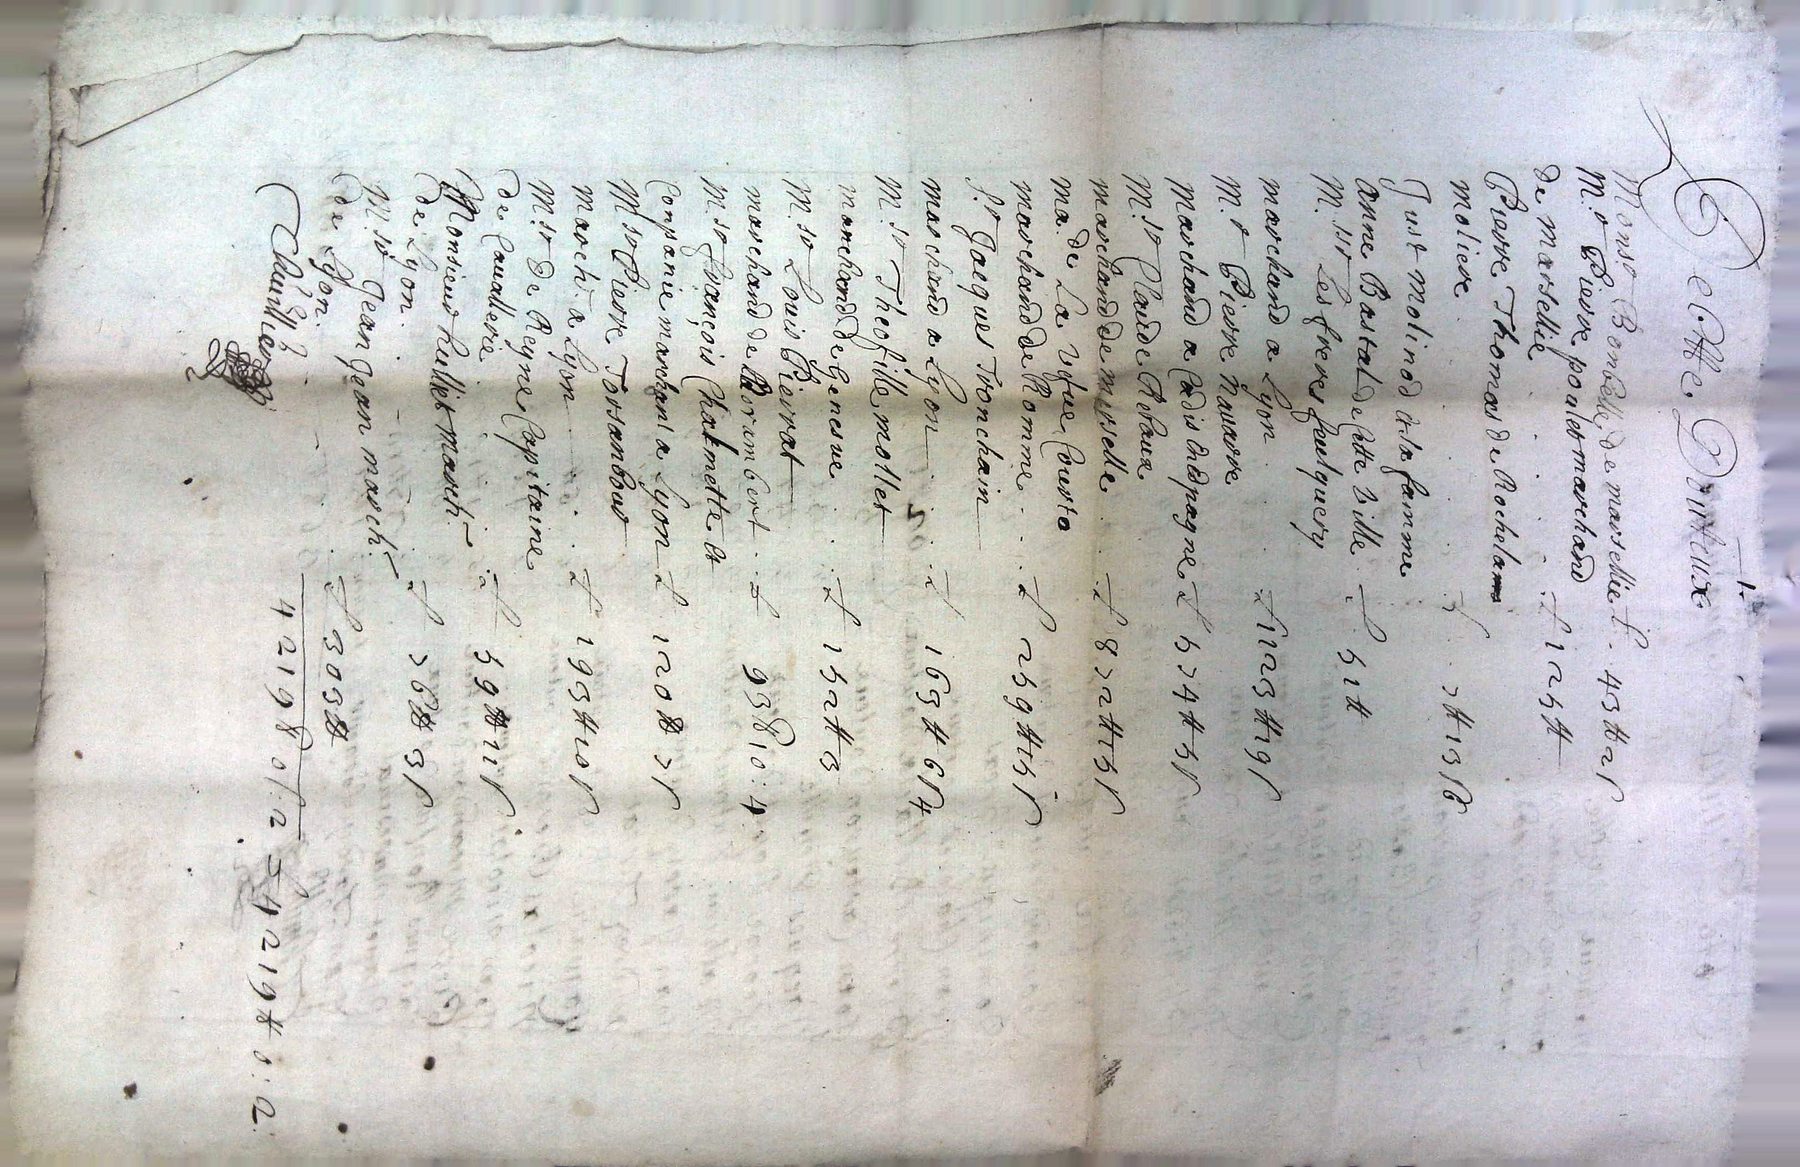 1.
Dette Ditteuse
Monsr Bonbelle de marsellie £. 43# 2 s
M.r Pierre poulet marchand
de marsellie . . . . £ 123#
Pierre Thomas de Rochelams
moliere . . . . . £ . 7# 13 s 6
Just molinod et sa famme
Anne Bastal de Cette Ville . £ 51#
M.sr Les freres
marchand a Lyon . . . £ 1123# 19 s
M.r Pierre Navarre
Marchand a Cadis en Espagne £ 574# 5 s
M.sr Claude Reboux
marchand de marselle . . £ 872# 15 s
ma.de La Vefue Cousta
marchand de Romme . . . £ 259# 15 s
S.r Jacques Tronchain
marchand a Lyon . . . £ 163# 6 s 4
M.sr Theofille mollet
marchand de Genesue . . . £ 152# 3
M.sr Louis Pierrat
marchand de . . £ 93# 10 : 4
M.sr François Chalmette et
Conpanie marchant a Lyon £ 120# 7 s
M.sr Pierre Torsanbour
march.t a Lyon . . . £ 193# 10 s
M.sr de Reyne Capitaine
de Cauallerie . . . £ 59# 11 s
Monsieur hullet march.t
de Lyon. . . . £ 76# 3 s
M.sr Jean Jean march.t
de Lyon. . . . £ 303#
4219# 0 s. 2 £ 4219# 0 : 2